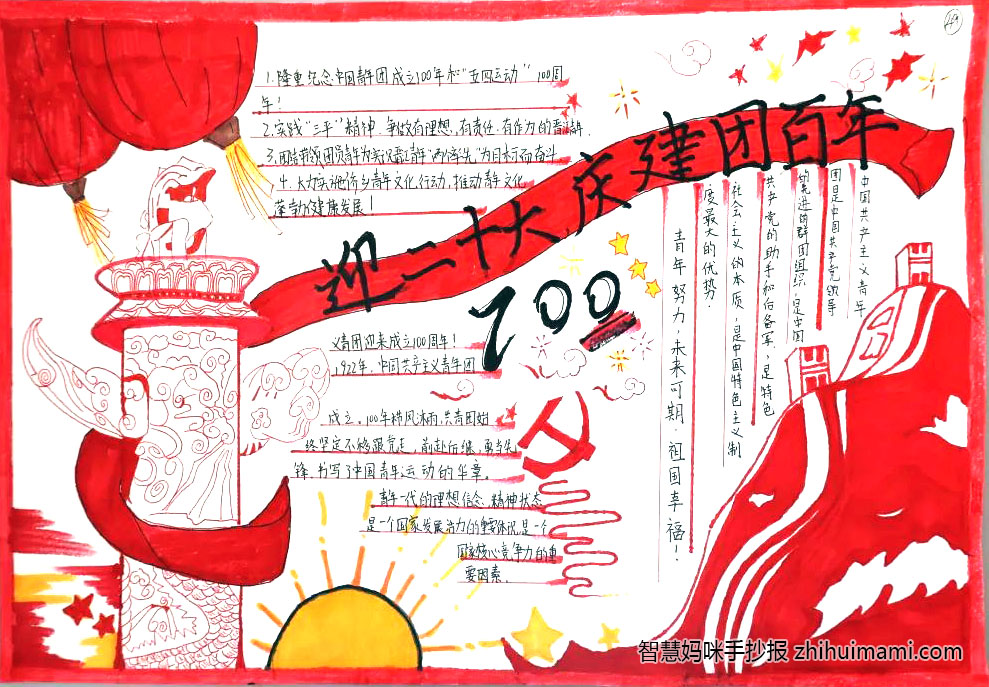 49
1.隆重纪念中国青年团成立100年和“五四运动”100周
年!
2.实践“三平”精神,争做有理想,有责任,有作力的晋江青年.
3.团结带领团员青年为实识晋江青年“两个率先”为目标而奋斗.
4.大力实施侨乡青年文化行动,推动青年文化
蓬勃健康发展!
迎二十大 庆建团百年
100
义青团迎来成立100周年!
1922年,中国共产主义青年团
成立。100年栉风沐雨,共青团始
终坚定不移跟党走,前赴后继,勇当先
锋,书写了中国青年运动的华章。
青年一代的理想信念,精神状态
是一个国家发展活力的重要体况,是一个
国家核心竞争力的重
要因素.
中国共产主义青年
团是中国共产党领导
的先进的群团组织,是中国
共产党的助手和后备军,是特色
社会主义的本质,是中国特色主义制
度最大的优势.
青年努力,未来可期,祖国幸福!
智慧妈咪手抄报 zhihuimami.com